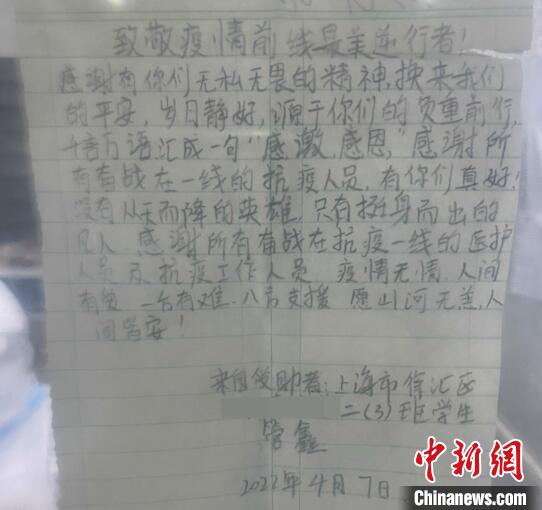 致敬疫情前线最美逆行者!
感谢有你们无私无畏的精神,换来我们
的平安,岁月静好,源于你们的负重前行,
千言万语汇成一句“感激,感恩,”感谢所
有奋战在一线的抗疫人员,有你们真好!
没有从天而降的英雄,只有挺身而出的
凡人,感谢所有奋战在抗疫一线的医护
人员及抗疫工作人员,疫情无情,人间
有爱,一方有难,八方支援,愿山河无恙,人
间皆安!
来自受助者:上海市徐汇区
二(3)班学生
管鑫
2022年4月7日
中新网
Chinanews.com